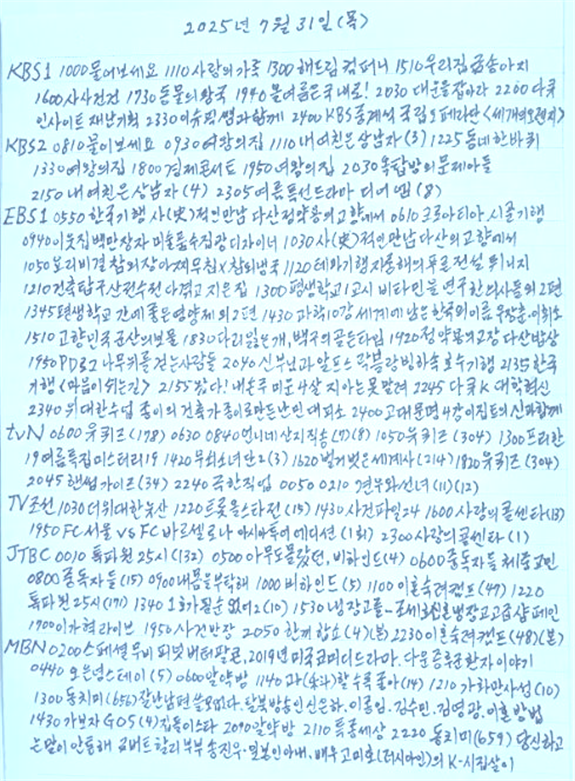 2025년 7월 31일(목)
KBS1 1000 물어보세요 1110 사랑의 가족 1300 해드림 컴퍼니 1510 우리집 금송아지
1600 사사건건 1730 동물의 왕국 1940 올여름은 국내로! 2030 대운을 잡아라 2200 다큐
인사이트 재난기획 2330 이슈픽 쌤과 함께 2400 KBS 중계석 국립오페라단 <세개의 오렌지>
KBS2 0810 물어보세요 0930 여왕의 집 1110 내 여친은 상남자 (3) 1225 동네 한 바퀴
1330 여왕의 집 1800 경제콘서트 1950 여왕의 집 2030 옥탑방의 문제아들
2150 내 여친은 상남자 (4) 2305 여름특선드라마 디어엠 (8)
EBS1 0550 한국기행 사(史)적인 만남 다산 정약용의 고향에서 0610 크로아티아 시골기행
0940 이웃집 백만장자 미술품 수집광 디자이너 1030 사(史)적인 만남 다산의 고향에서
1050 요리비결 참외장아찌무침X참외냉국 1120 테마기행 지중해의 푸른 전설 튀니지
1210 건축탐구 산전수전 다 겪고 지은 집 1300 평생학교 1교시 비타민을 연구한 의사들 외 2편
1345 평생학교 간에 좋은 영양제 외 2편 1430 과학 10강 세계에 남은 한국의 이름 우장춘·이휘소
1510 고향민국 군산의 보물 1830 다리 잃은 개, 백구의 골든타임 1920 정약용의 고장 다산밥상
1950 PD로그 나무 위를 걷는 사람들 2040 신부님과 알프스 곽블랑 빙하속 호수기행 2135 한국
기행 <마음이 쉬는 길> 2155 왔다! 내 손주 미운 4살 지아는 못말려 2245 다큐K 대학혁신
2340 위대한 수업 종이의 건축가 종이로 만든 난민 대피소 2400 고대문명 4강 이집트의 신과 함께
tvN 0600 유퀴즈 (178) 0630 0840 언니네 산지직송 (7)(8) 1050 유퀴즈 (304) 1300 프리한
19 여름특집 미스터리19 1420 무쇠소녀단2 (3) 1620 벌거벗은 세계사 (214) 1820 유퀴즈 (304)
2045 핸썸가이즈 (34) 2240 극한직업 0050 0210 견우와 선녀 (11)(12)
TV조선 1030 더 위대한 유산 1220 트롯올스타전 (15) 1430 사건파일24 1600 사랑의 콜센타 (13)
1950 FC서울 vs FC바르셀로나 아시아투어 에디션 (1회) 2300 사랑의 콜센타 (1)
JTBC 0010 톡파원 25시 (132) 0500 아무도 몰랐던, 비하인드 (4) 0600 중독자들 체중고민
0800 중독자들 (15) 0900 내 몸을 부탁해 1000 비하인드 (5) 1100 이혼숙려캠프 (47) 1220
톡파원 25시 (171) 1340 1호가 될 순 없어2 (10) 1530 냉장고를 - 조세호 신혼 냉장고 고급 샴페인
1700 이가혁 라이브 1950 사건반장 2050 한끼합쇼 (4)(본) 2230 이혼숙려캠프 (48)(본)
MBN 0200 스페셜무비 피넛 버터 팔콘, 2019년 미국 코미디 드라마. 다운증후군 환자 이야기
0440 오은영 스테이 (5) 0600 알약방 1140 과(果)할수록 좋아 (14) 1210 가화만사성 (10)
1300 동치미 (656) 잘난 남편 쓸모없다. 탈북방송인 신은하. 이홍임. 김수민. 김영광. 이혼 방법
1430 가보자GO S5 (4) 집들이 스타 2090 알약방 2110 특종세상 2220 동치미 (659) 당신하고
는 말이 안통해 로버트 할리 부부 송진우·일본인 아내, 배우 고미호 (러시아인)의 K-시집살이